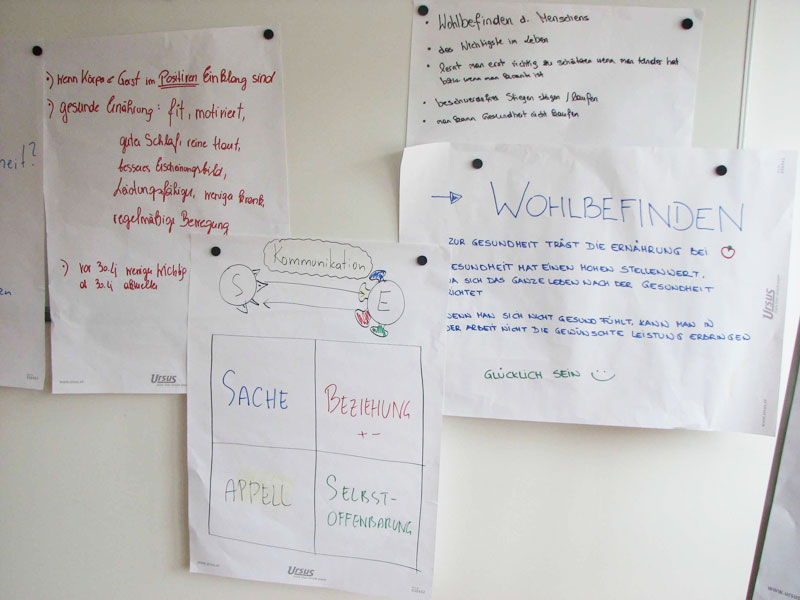 heit?
wenn Körper & Geist im Positiven Einklang sind
gesunde Ernährung: fit, motiviert,
guter Schlaf, reine Haut,
besseres Erscheinungsbild,
Leistungsfähiger, weniger krank,
regelmäßige Bewegung
vor 30.Lj weniger wichtig
ab 30.Lj aktueller
www.ursus.at
Ursus
• Wohlbefinden d. Menschens
• das Wichtigste im Leben
• lernt man erst richtig zu schätzen wenn man Kinder hat
bzw. wenn man krank ist
• beschwerdefrei Stiegen steigen / laufen
• man kann Gesundheit nicht kaufen
→ WOHLBEFINDEN
ZUR GESUNDHEIT TRÄGT DIE ERNÄHRUNG BEI
GESUNDHEIT HAT EINEN HOHEN STELLENWERT,
DA SICH DAS GANZE LEBEN NACH DER GESUNDHEIT
RICHTET
WENN MAN SICH NICHT GESUND FÜHLT, KANN MAN IN
DER ARBEIT NICHT DIE GEWÜNSCHTE LEISTUNG ERBRINGEN
GLÜCKLICH SEIN
Ursus
Kommunikation
S
E
SACHE
BEZIEHUNG
+ -
APPELL
SELBST-
OFFENBARUNG
www.ursus.at
Ursus